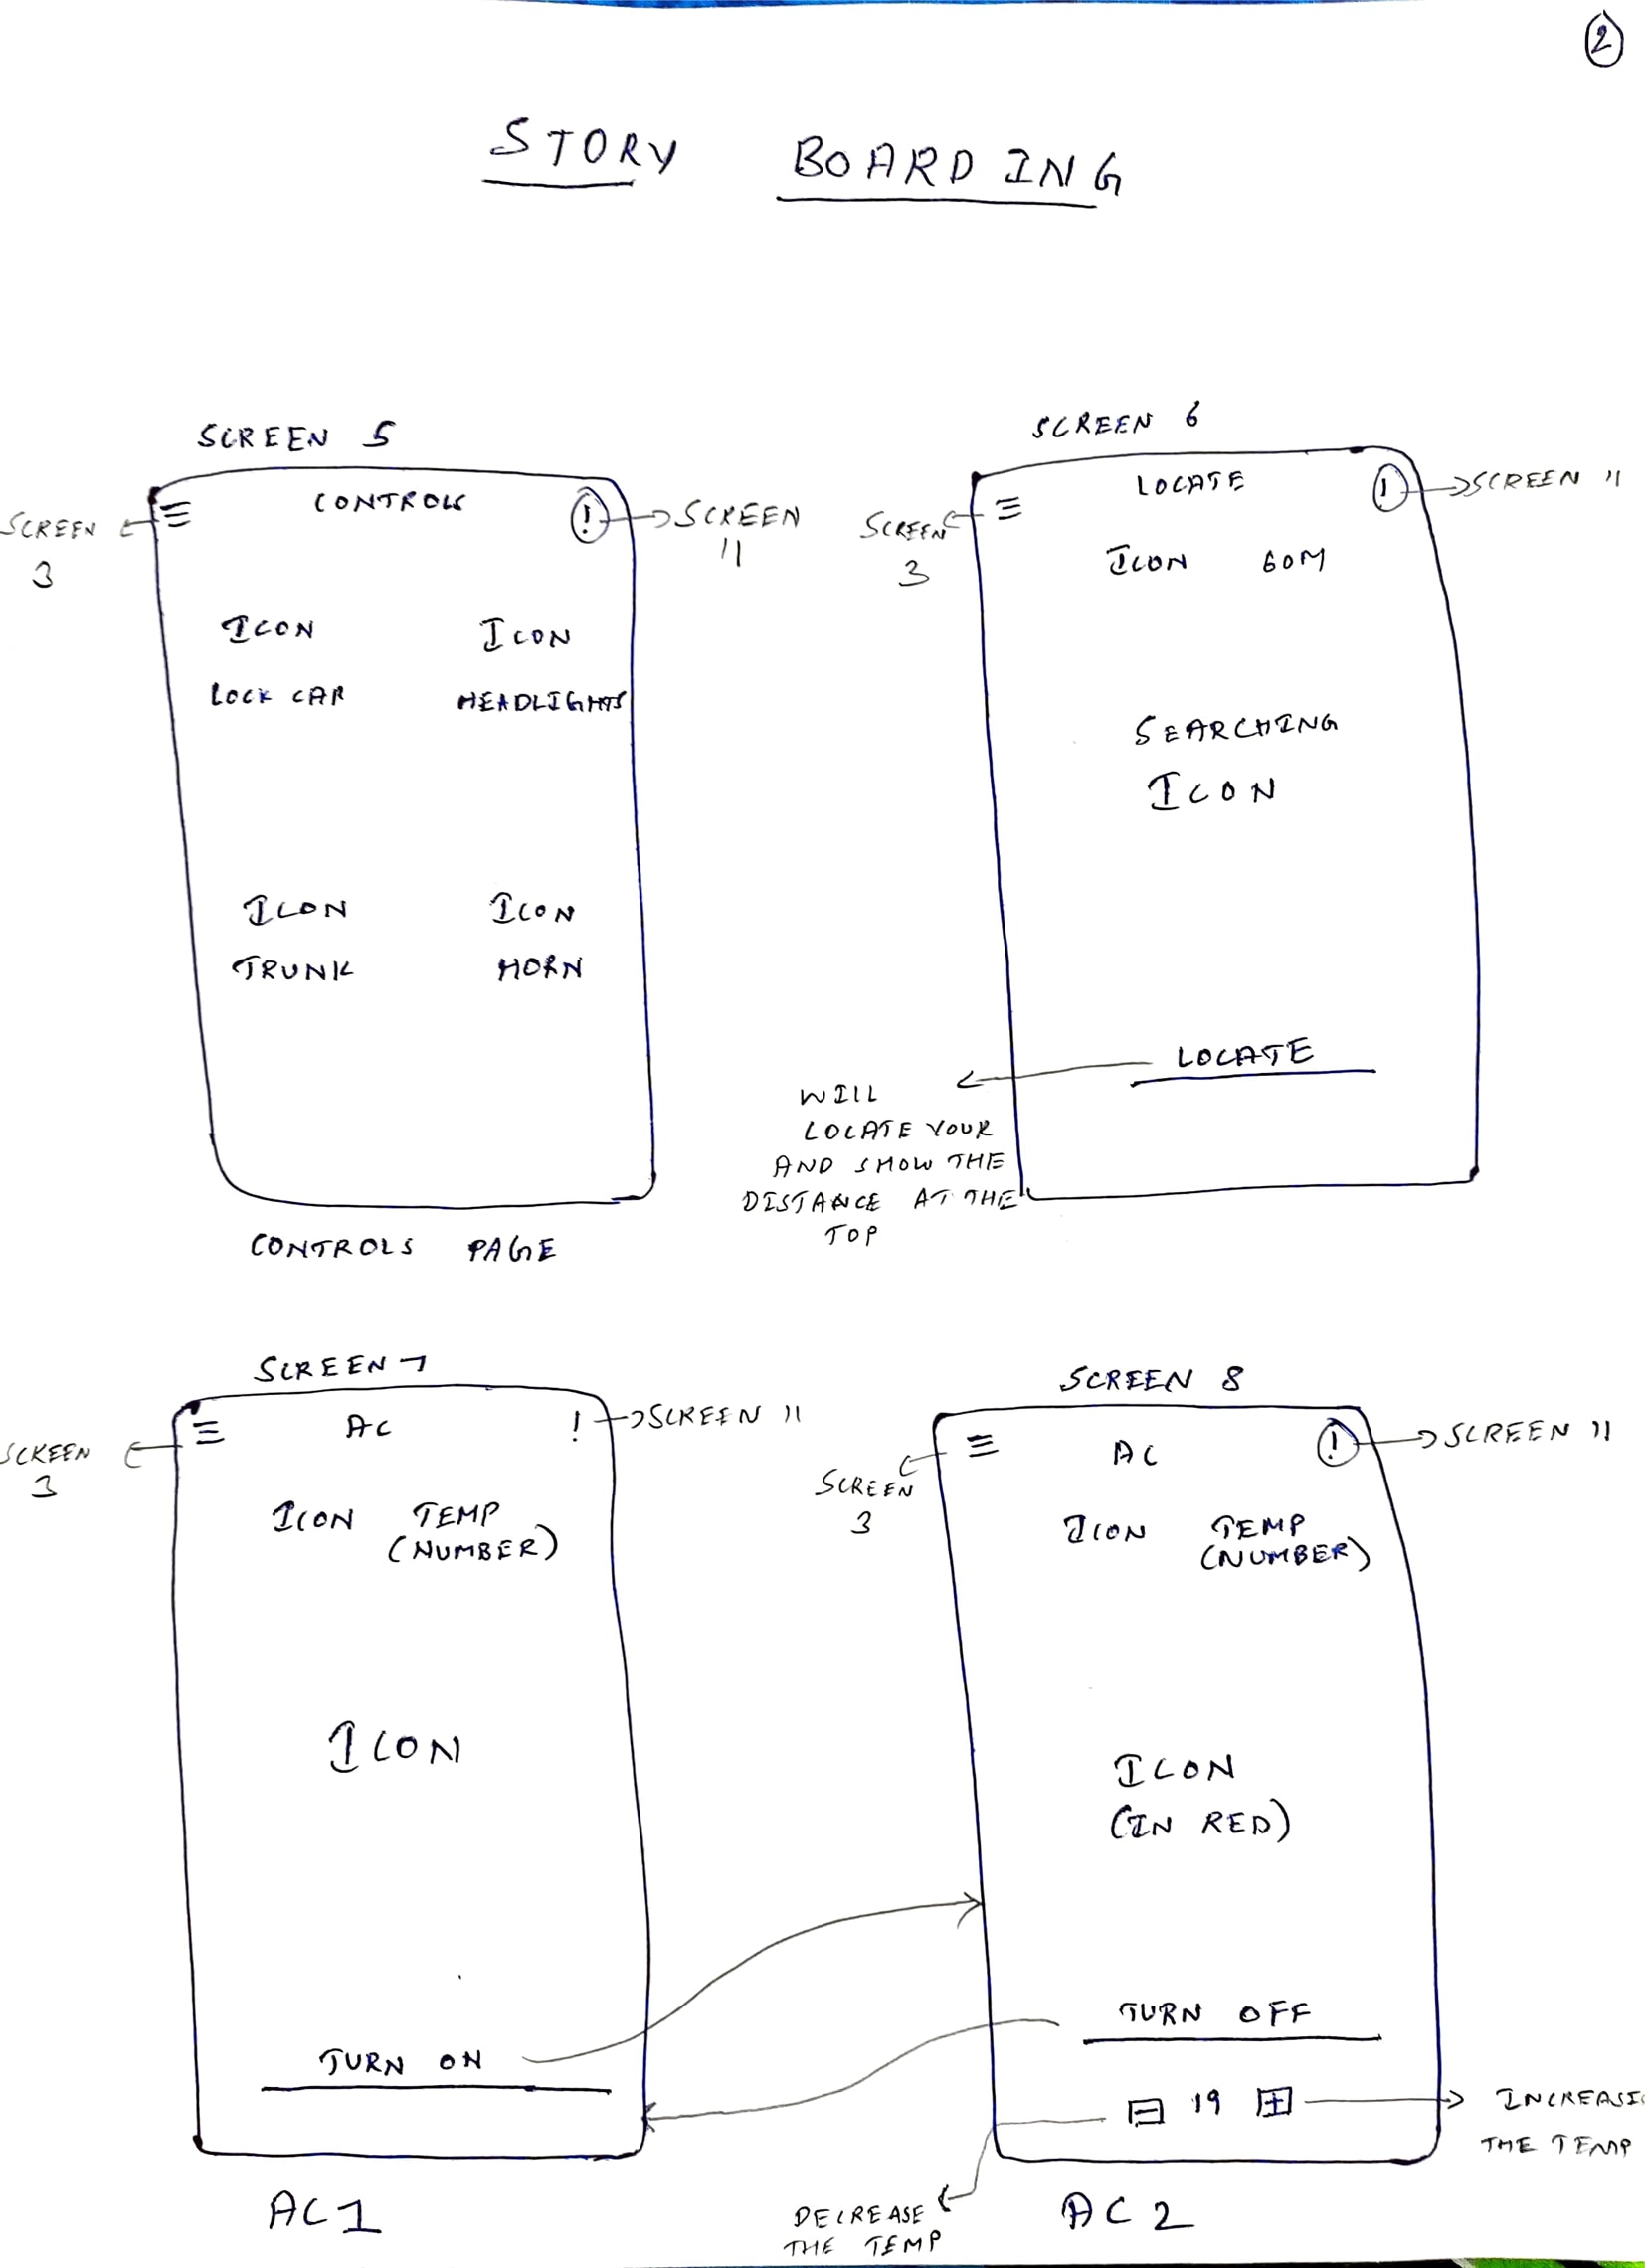 2
STORY BOARDING
SCREEN 5
CONTROLS
!
SCREEN
3
SCREEN
11
ICON ICON
LOCK CAR HEADLIGHTS
ICON ICON
TRUNK HORN
CONTROLS PAGE
SCREEN 6
LOCATE
!
SCREEN
3
SCREEN 11
ICON 60M
SEARCHING
ICON
LOCATE
WILL
LOCATE YOUR
AND SHOW THE
DISTANCE AT THE
TOP
SCREEN 7
AC
!
SCREEN
3
SCREEN 11
ICON TEMP
(NUMBER)
ICON
TURN ON
AC1
SCREEN 8
AC
!
SCREEN
3
SCREEN 11
ICON TEMP
(NUMBER)
ICON
(IN RED)
TURN OFF
- 19 +
THE TEMP
DECREASE
THE TEMP
AC2